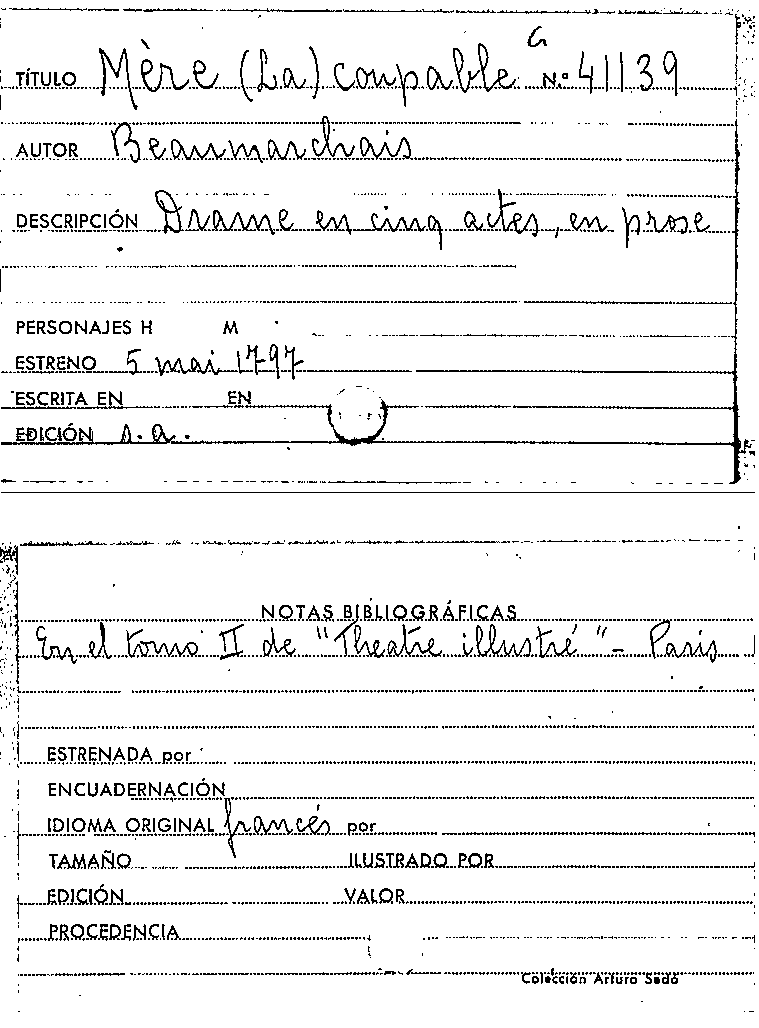 G
TÍTULO Mère (La) coupable N.º 41139
AUTOR Beaumarchais
DESCRIPCIÓN Drame en cinq actes, en prose
PERSONAJES H M
ESTRENO 5 mai 1797
ESCRITA EN EN
EDICIÓN s.a.
NOTAS BIBLIOGRÁFICAS
En el tomo II de "Theatre illustré" - Paris
ESTRENADA por
ENCUADERNACIÓN
IDIOMA ORIGINAL francés por
TAMAÑO ILUSTRADO POR
EDICIÓN VALOR
PROCEDENCIA
Colección Arturo Sedó